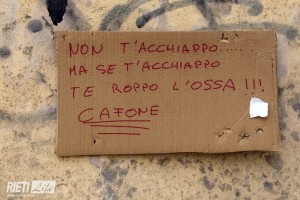 NON T'ACCHIAPPO.....
MA SE T'ACCHIAPPO
TE ROPPO L'OSSA !!!
CAFONE
RIETI Life